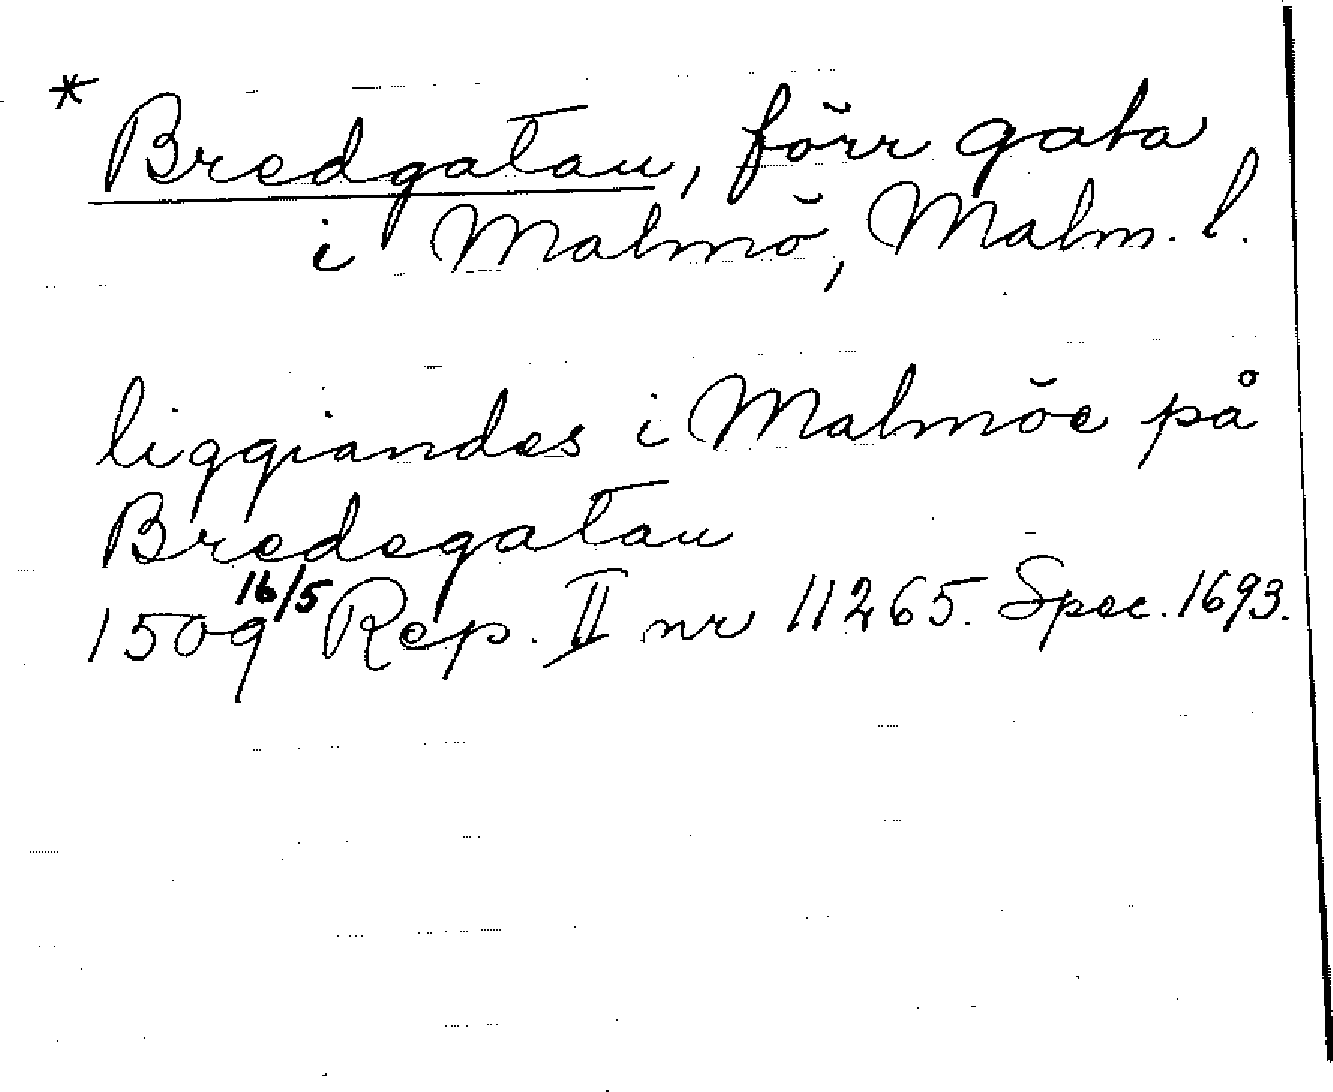 * Bredgatan, förr gata
i Malmö, Malm. l.
liggiandes i Malmöe på
Bredegatan
1509 16/5 Rep. II nr 11265. Spec. 1693.